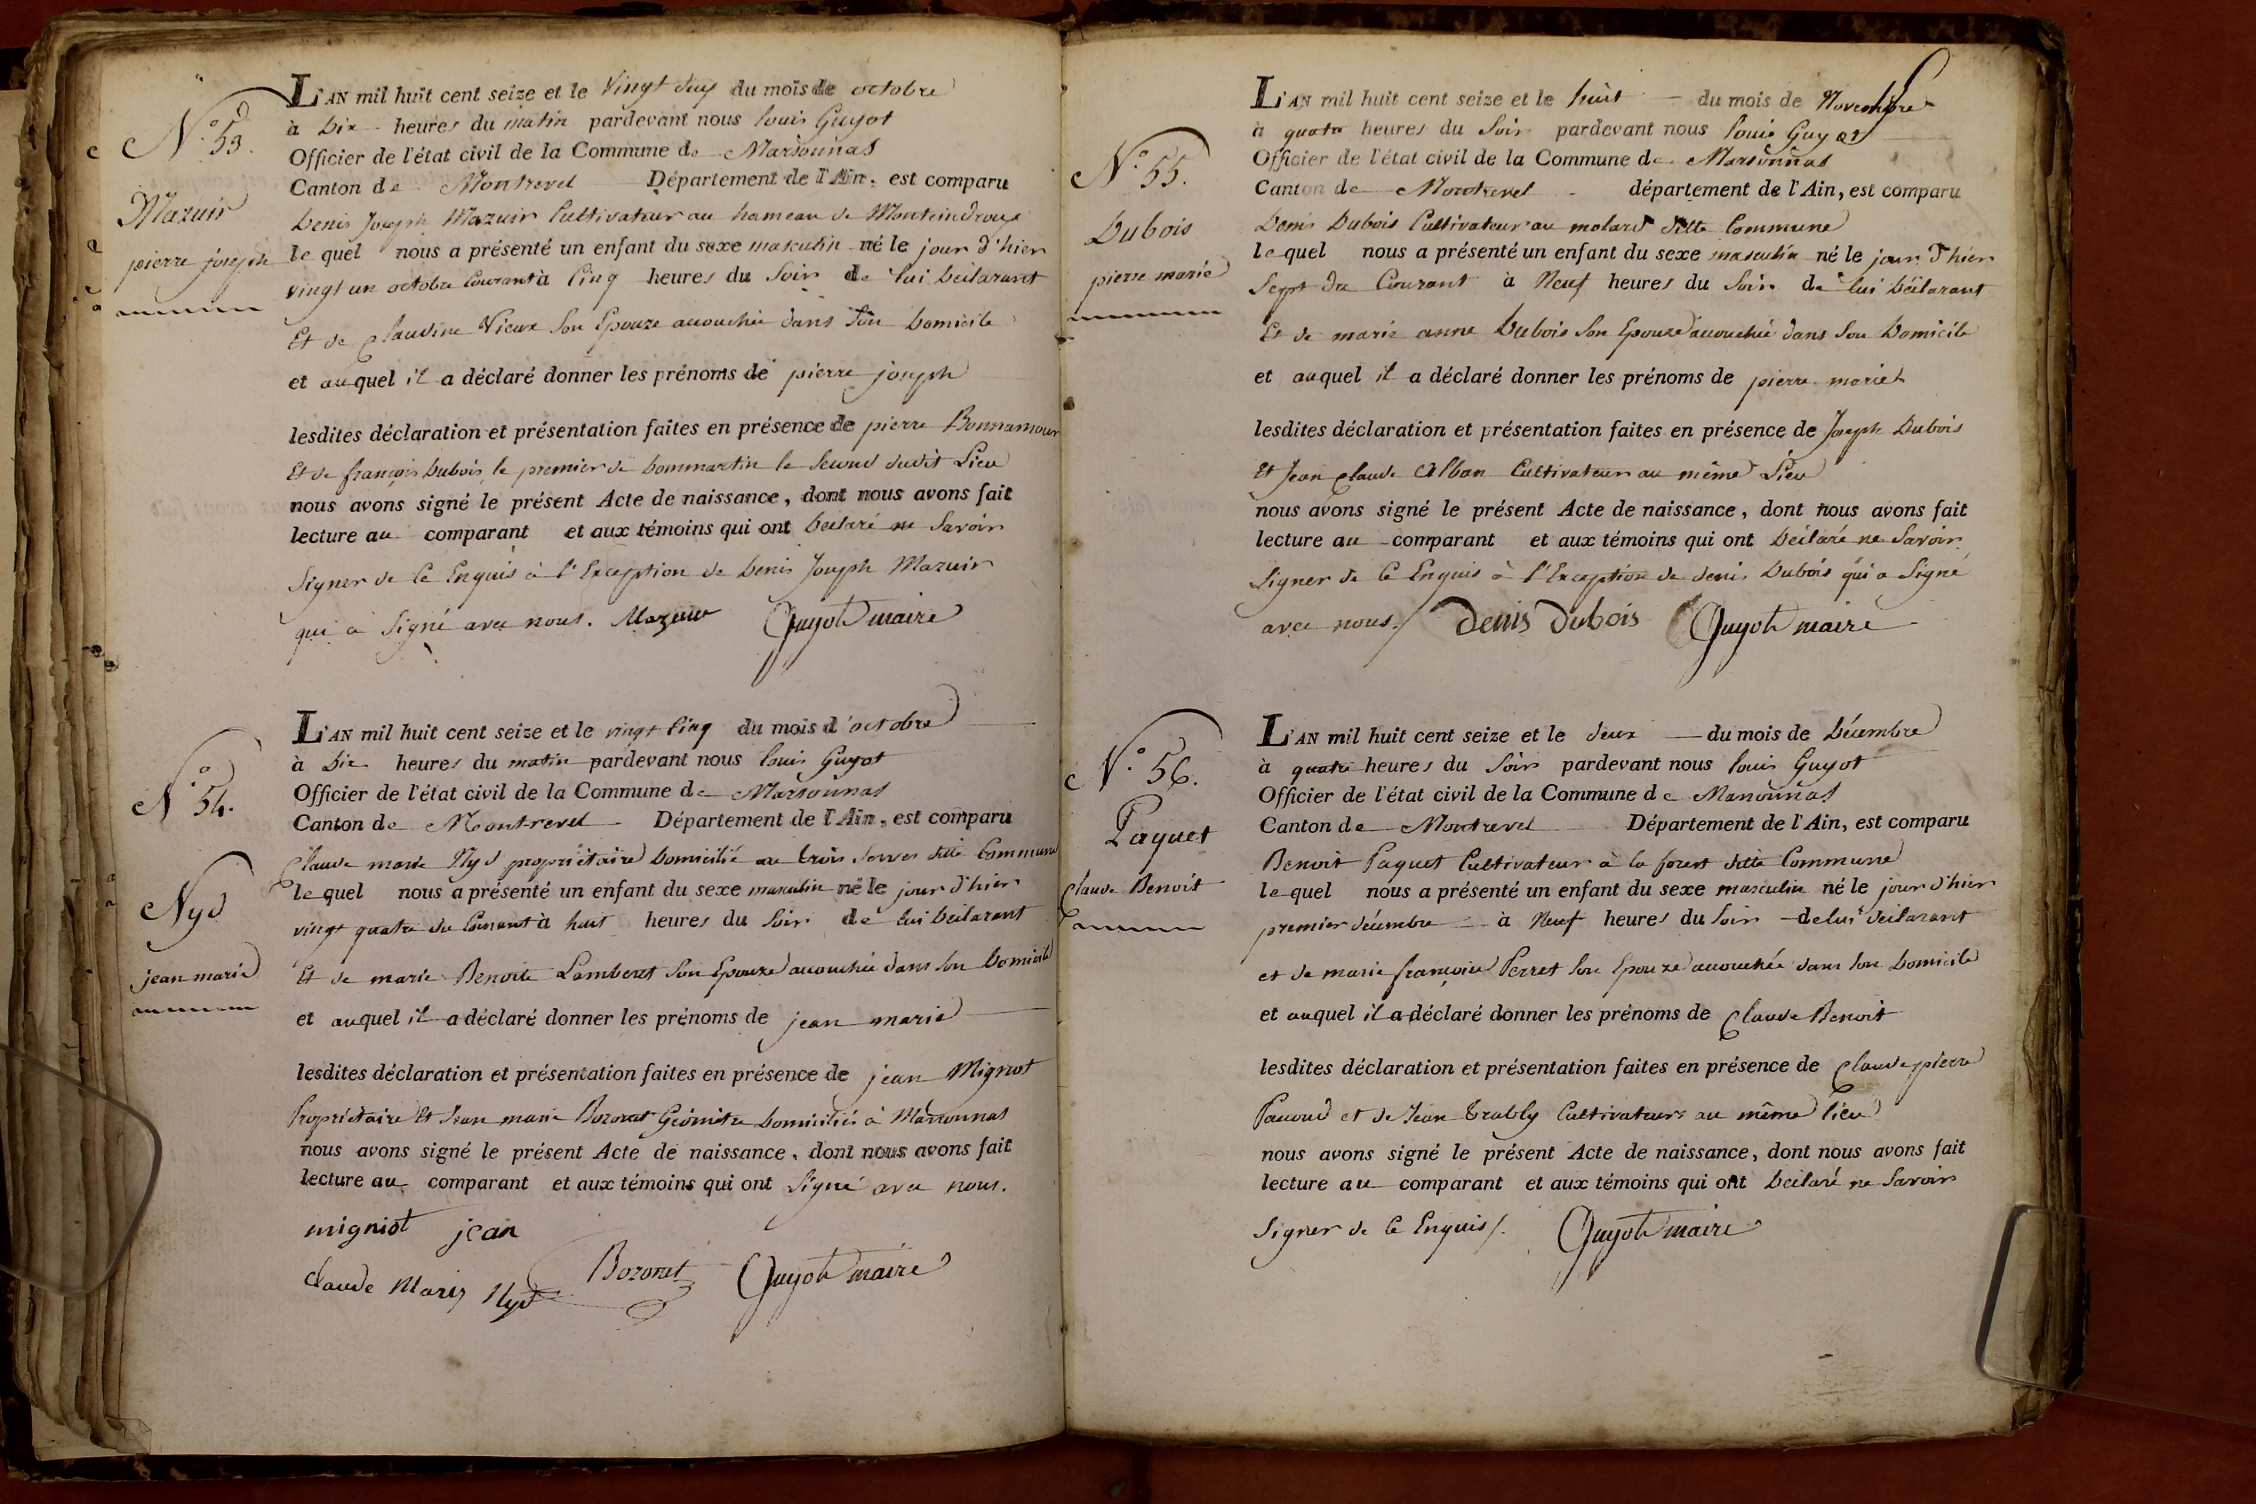 N.º 53.
Mazuir
pierre joseph
L'AN mil huit cent seize et le vingt deux du mois de octobre
à Dix heures du matin pardevant nous Louis Guyot
Officier de l'état civil de la Commune de Marsonnas
Canton de Montrevel Département de l'Ain, est comparu
Denis Joseph Mazuir Cultivateur au hameau de
le quel nous a présenté un enfant du sexe masculin né le jour d'hier
vingt un octobre Courant à Cinq heures du Soir de lui Déclarant
Et de Claudine Vieux Son Epouze accouchée dans Son Domicile
et auquel il a déclaré donner les prénoms de pierre joseph
lesdites déclaration et présentation faites en présence de pierre Bonnamour
Et de françois Dubois, le premier de Dommartin le Second dudit Lieu
nous avons signé le présent Acte de naissance, dont nous avons fait
lecture au comparant et aux témoins qui ont Déclaré ne Savoir
Signer de Ce Enquis à l'Exception de Denis Joseph Mazuir
qui a Signé avec nous. Mazuir Guyot maire
N.º 54.
Nyd
jean marie
L'AN mil huit cent seize et le vingt Cinq du mois d'octobre
à Dix heures du matin pardevant nous Louis Guyot
Officier de l'état civil de la Commune de Marsonnas
Canton de Montrevel Département de l'Ain, est comparu
Claude marie Nyd propriétaire Domicilié au trois Serves dite Commune
le quel nous a présenté un enfant du sexe masculin né le jour d'hier
vingt quatre du Courant à huit heures du Soir de lui Déclarant
Et de marie Benoite Lamberet Son Epouze accouchée dans Son Domicile
et auquel il a déclaré donner les prénoms de jean marie
lesdites déclaration et présentation faites en présence de jean Mignot
Propriétaire Et Jean marie Bozonet Géomètre Domiciliés à Marsonnas
nous avons signé le présent Acte de naissance, dont nous avons fait
lecture au comparant et aux témoins qui ont Signé avec nous.
migniot jean
Claude Marie Nyd Bozonet Guyot maire
N.º 55.
Dubois
pierre marie
L'AN mil huit cent seize et le huit du mois de Novembre
à quatre heures du Soir pardevant nous Louis Guyot
Officier de l'état civil de la Commune de Marsonnas
Canton de Montrevel département de l'Ain, est comparu
Denis Dubois Cultivateur au molard dite Commune
le quel nous a présenté un enfant du sexe masculin né le jour d'hier
Sept du Courant à Neuf heures du Soir de lui Déclarant
Et de marie anne Dubois Son Epouze accouchée dans Son Domicile
et auquel il a déclaré donner les prénoms de pierre marie
lesdites déclaration et présentation faites en présence de Joseph Dubois
Et Jean Claude Alban Cultivateur au même Lieu
nous avons signé le présent Acte de naissance, dont nous avons fait
lecture au comparant et aux témoins qui ont Déclaré ne Savoir
Signer de Ce Enquis à l'Exception de denis Dubois qui a Signé
avec nous./ Denis Dubois Guyot maire
N.º 56.
Paquet
Claude Benoit
L'AN mil huit cent seize et le deux du mois de Décembre
à quatre heures du Soir pardevant nous Louis Guyot
Officier de l'état civil de la Commune de Marsonnas
Canton de Montrevel Département de l'Ain, est comparu
Benoit Paquet Cultivateur à la forest dite Commune
le quel nous a présenté un enfant du sexe masculin né le jour d'hier
premier décembre à Neuf heures du Soir de lui déclarant
et de marie françoise Perret Son Epouze accouchée dans Son Domicile
et auquel il a déclaré donner les prénoms de Claude Benoit
lesdites déclaration et présentation faites en présence de Claude pierre
Pacoud et de Jean Trably Cultivateurs au même lieu
nous avons signé le présent Acte de naissance, dont nous avons fait
lecture au comparant et aux témoins qui ont Déclaré ne Savoir
Signer de Ce Enquis/. Guyot maire